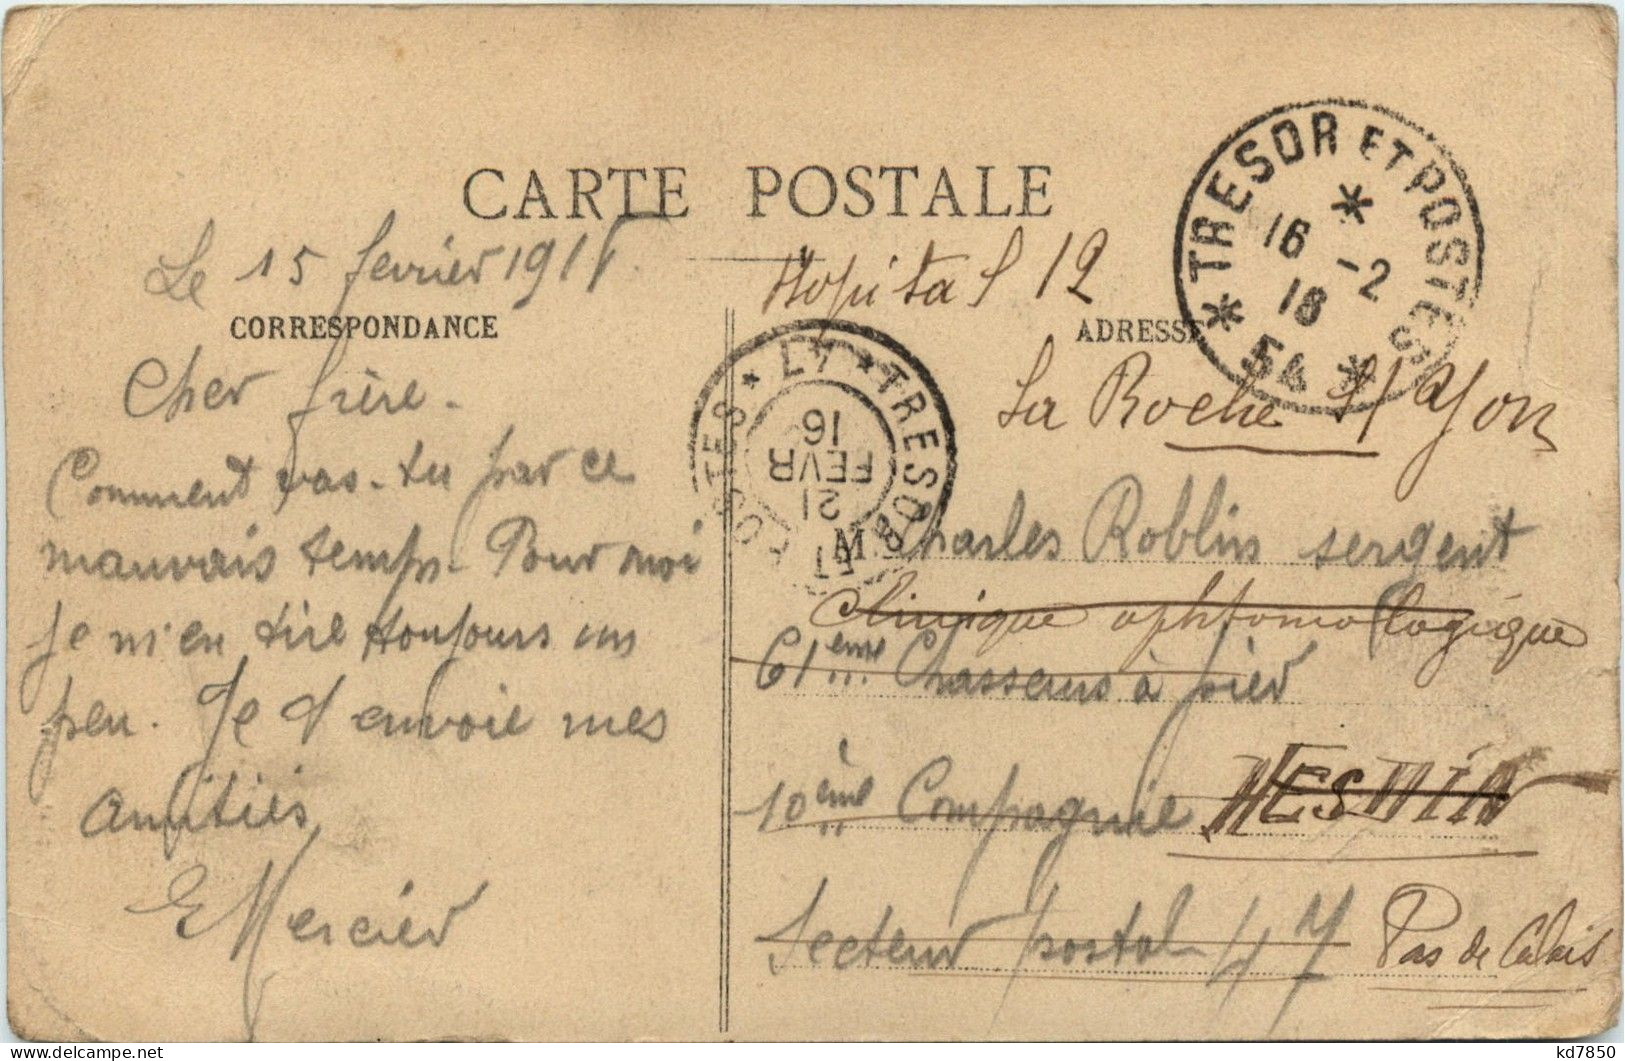 CARTE POSTALE
Le 15 fevrier 191
CORRESPONDANCE
Cher frère.
Comment vas-tu par ce
mauvais temps. Pour moi
Je m'en tire toujours un
peu. Je t'envoie mes
amitiés
E Mercier
TRESOR ET POSTES
16 -2
16
* 54 *
Hopital 12
ADRESSE
La Roche S/ Yon
* 47 * TRESOR ET POSTES
21
FEVR
16
M Charles Roblin sergent
Clinique ophtomologique
61ème Chasseurs à pied
10ème Compagnie HESDIN
Secteur postal 47 Pas de Calais
delcampe.net
kd7850